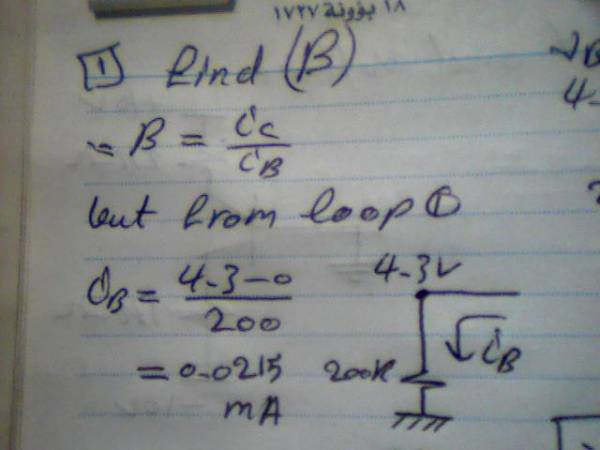 ١٨ بؤونة ١٧٢٧
1 find (B)
∴ B = ic / iB
but from loop ①
iB = 4.3-0 / 200
= 0.0215 mA
4.3v
200K
iB
4.